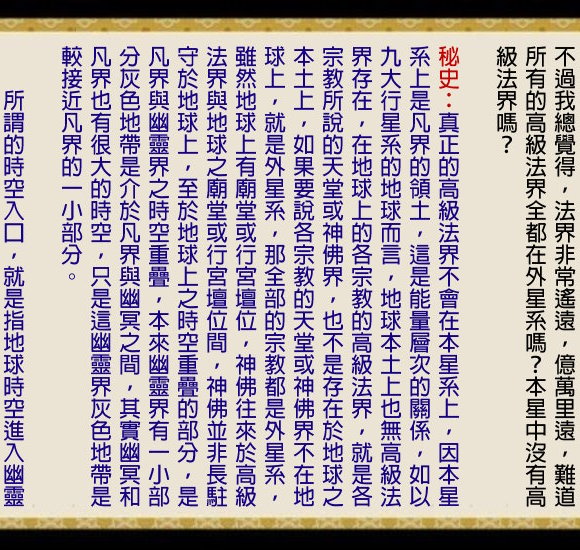 不過我總覺得，法界非常遙遠，億萬里遠，難道
所有的高級法界全都在外星系嗎？本星中沒有高
級法界嗎？
秘史：真正的高級法界不會在本星系上，因本星
系上是凡界的領土，這是能量層次的關係，如以
九大行星系的地球而言，地球本土上也無高級法
界存在，在地球上的各宗教的高級法界，就是各
宗教所說的天堂或神佛界，也不是存在於地球之
本土上，如果要說各宗教的天堂或神佛界不在地
球上，就是外星系，那全部的宗教都是外星系，
雖然地球上有廟堂或行宮壇位，神佛往來於高級
法界與地球之廟堂或行宮壇位間，神佛並非長駐
守於地球上，至於地球上之時空重疊的部分，是
凡界與幽靈界之時空重疊，本來幽靈界有一小部
分灰色地帶是介於凡界與幽冥之間，其實幽冥和
凡界也有很大的時空，只是這幽靈界灰色地帶是
較接近凡界的一小部分。
所謂的時空入口，就是指地球時空進入幽靈